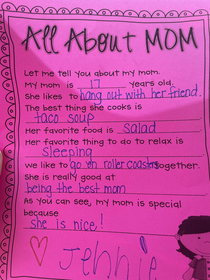 All About MOM
Let me tell you about my mom.
My mom is 17 years old.
She likes to hang out with her friend.
The best thing she cooks is
taco soup
Her favorite food is salad
Her favorite thing to do to relax is
sleeping
we like to go on roller coasters together.
She is really good at
being the best mom
As you can see, my mom is special
because
she is nice!
Jennie